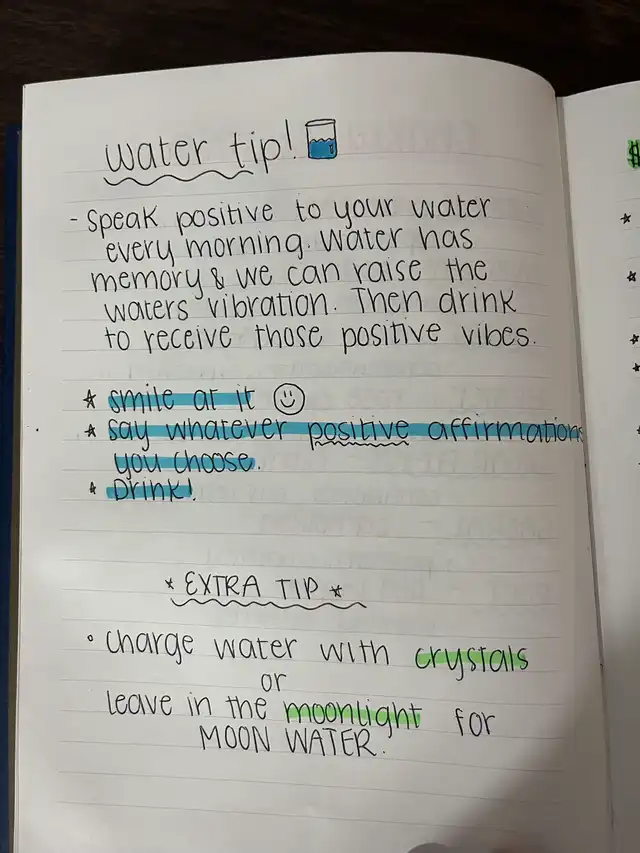 water tip!
- Speak positive to your water
every morning. Water has
memory & we can raise the
waters vibration. Then drink
to receive those positive vibes.
★ smile at it ☺
★ say whatever positive affirmations
you choose.
★ Drink!
* EXTRA TIP *
• Charge water with crystals
or
leave in the moonlight for
MOON WATER.
$